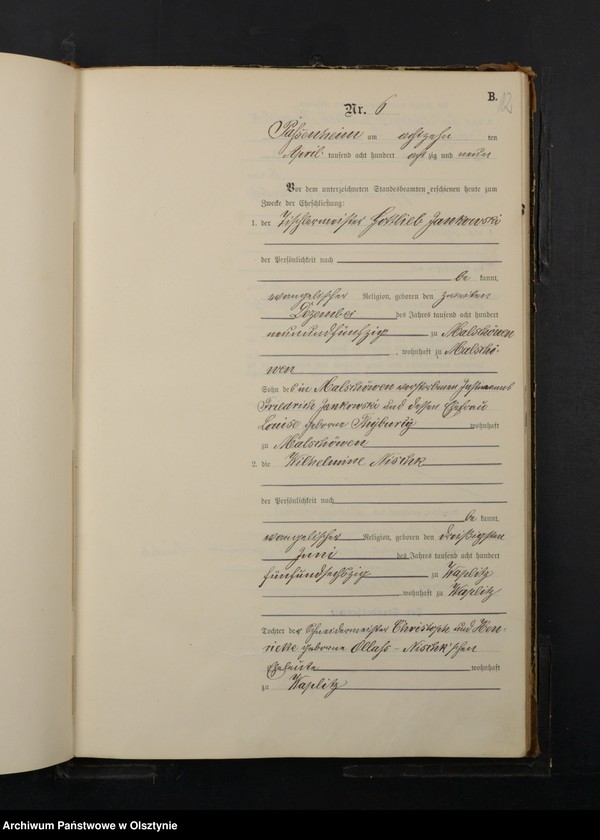 B. 12
Nr. 6
Passenheim am achtzehn ten
April tausend acht hundert acht zig und neun
Vor dem unterzeichneten Standesbeamten erschienen heute zum
Zwecke der Eheschließung:
1. der Tischlermeister Gottlieb Jankowski
der Persönlichkeit nach
be kannt,
evangelischer Religion, geboren den zweiten
Dezember des Jahres tausend acht hundert
neunundfünfzig zu Malschöwen
, wohnhaft zu Malschö-
wen
Sohn des in Malschöwen verstorbenen Instmanns
Friedrich Jankowski und dessen Ehefrau
Louise geborne wohnhaft
zu Malschöwen
2. die Wilhelmine Nischk
der Persönlichkeit nach
be kannt,
evangelischer Religion, geboren den dreißigsten
Juni des Jahres tausend acht hundert
fünfundsechszig zu Waplitz
, wohnhaft zu Waplitz
Tochter der Schneidermeister Christoph und Hen-
riette geborne Ollass - Nischk'schen
Eheleute wohnhaft
zu Waplitz
Archiwum Państwowe w Olsztynie